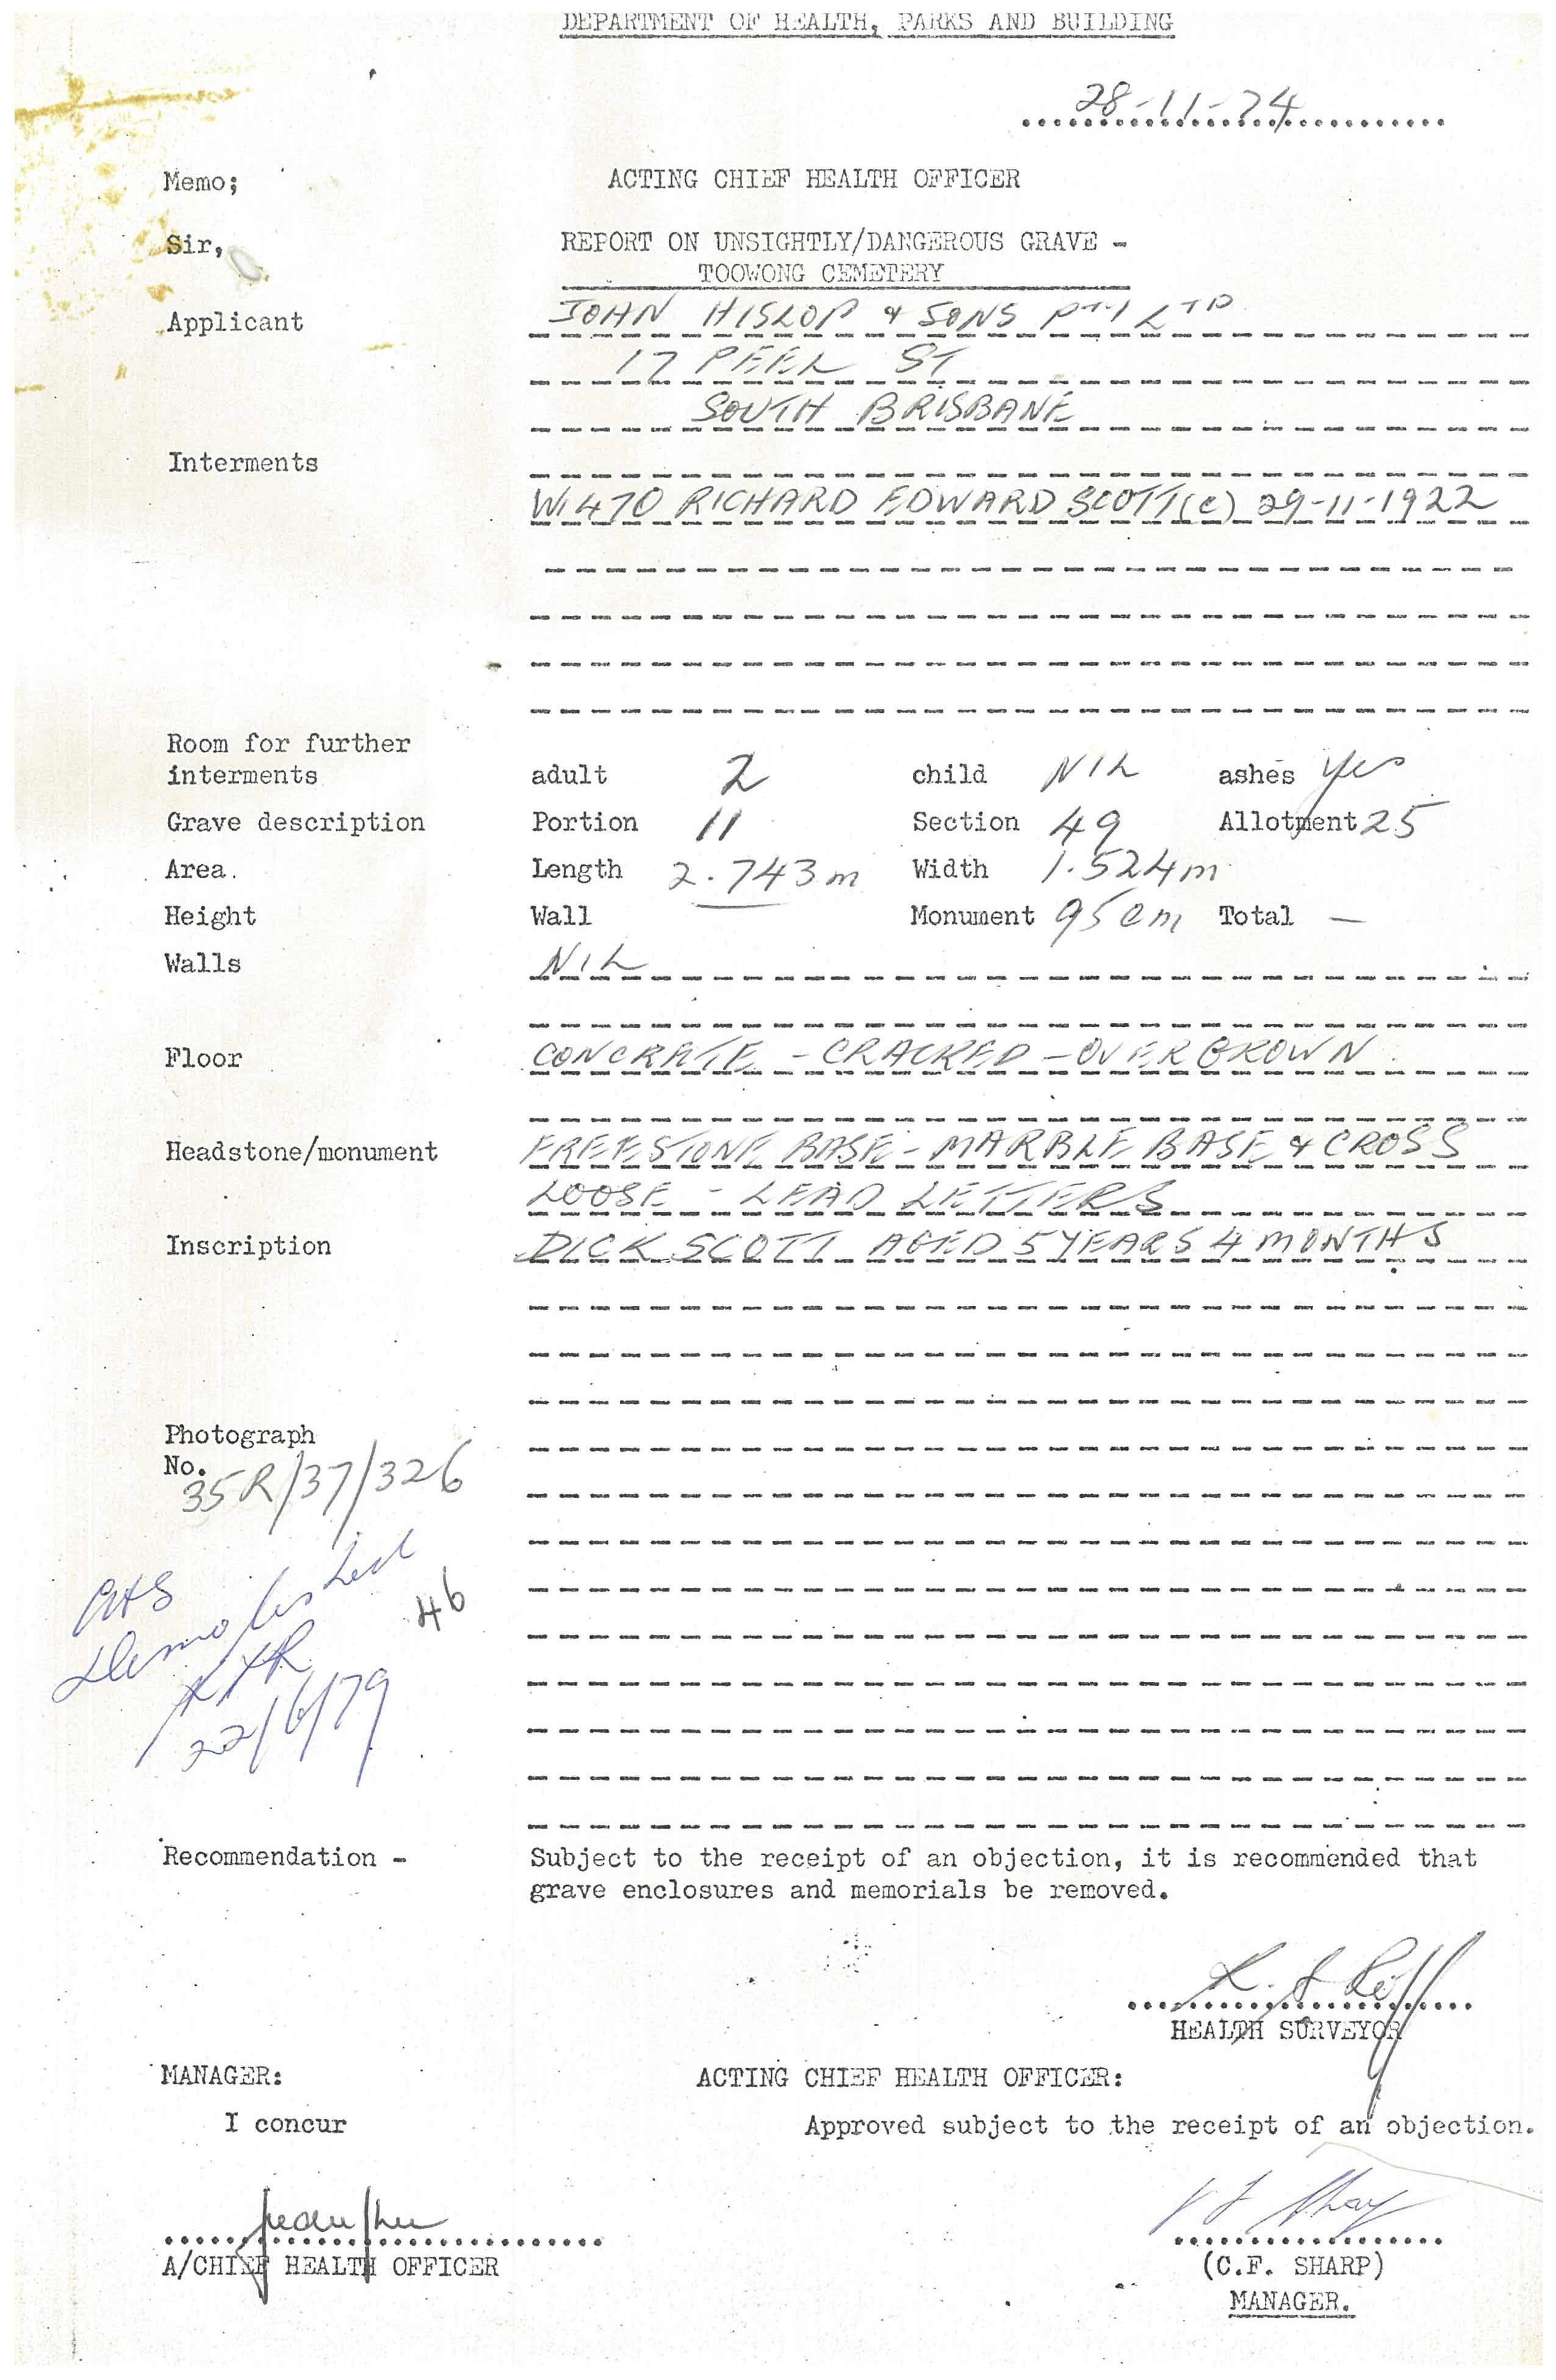 DEPARTMENT OF HEALTH, PARKS AND BUILDING
28-11-74
Memo; ACTING CHIEF HEALTH OFFICER
Sir, REPORT ON UNSIGHTLY/DANGEROUS GRAVE -
TOOWONG CEMETERY
Applicant JOHN HISLOP & SONS PTY LTD
17 PEEL ST
SOUTH BRISBANE
Interments
W1470 RICHARD EDWARD SCOTT (c) 29-11-1922
Room for further
interments adult 2 child NIL ashes Yes
Grave description Portion 11 Section 49 Allotment 25
Area. Length 2.743m Width 1.524m
Height Wall Monument 95cm Total —
Walls NIL
Floor CONCRATE - CRACKED - OVERGROWN.
Headstone/monument FREESTONE BASE - MARBLE BASE & CROSS
LOOSE - LEAD LETTERS
Inscription DICK SCOTT AGED 5 YEARS 4 MONTHS
Photograph
No.
35R/37/326
Demolished
46
22/6/79
Recommendation - Subject to the receipt of an objection, it is recommended that
grave enclosures and memorials be removed.
HEALTH SURVEYOR
MANAGER: ACTING CHIEF HEALTH OFFICER:
I concur Approved subject to the receipt of an objection.
A/CHIEF HEALTH OFFICER (C.F. SHARP)
MANAGER.